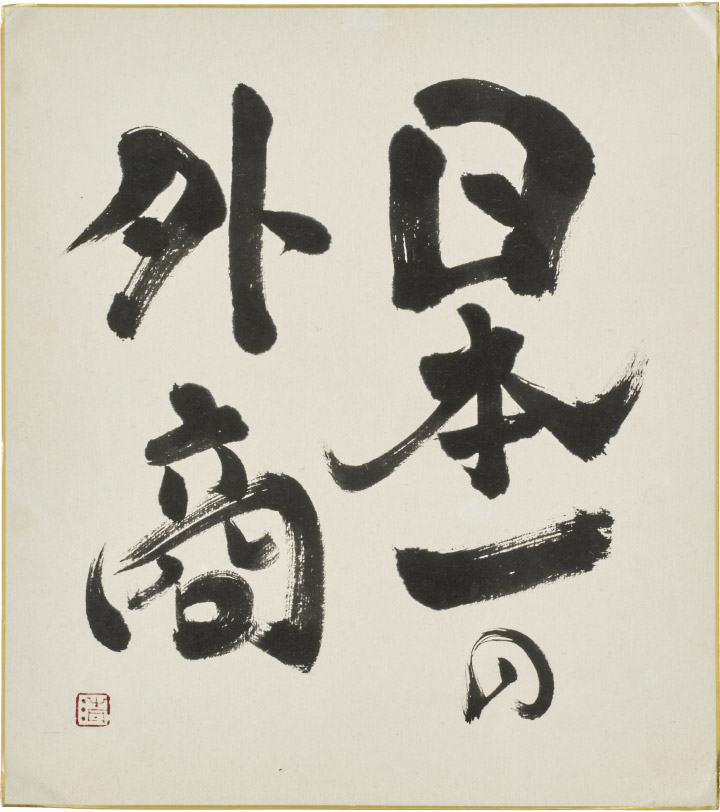 日本一の
外商